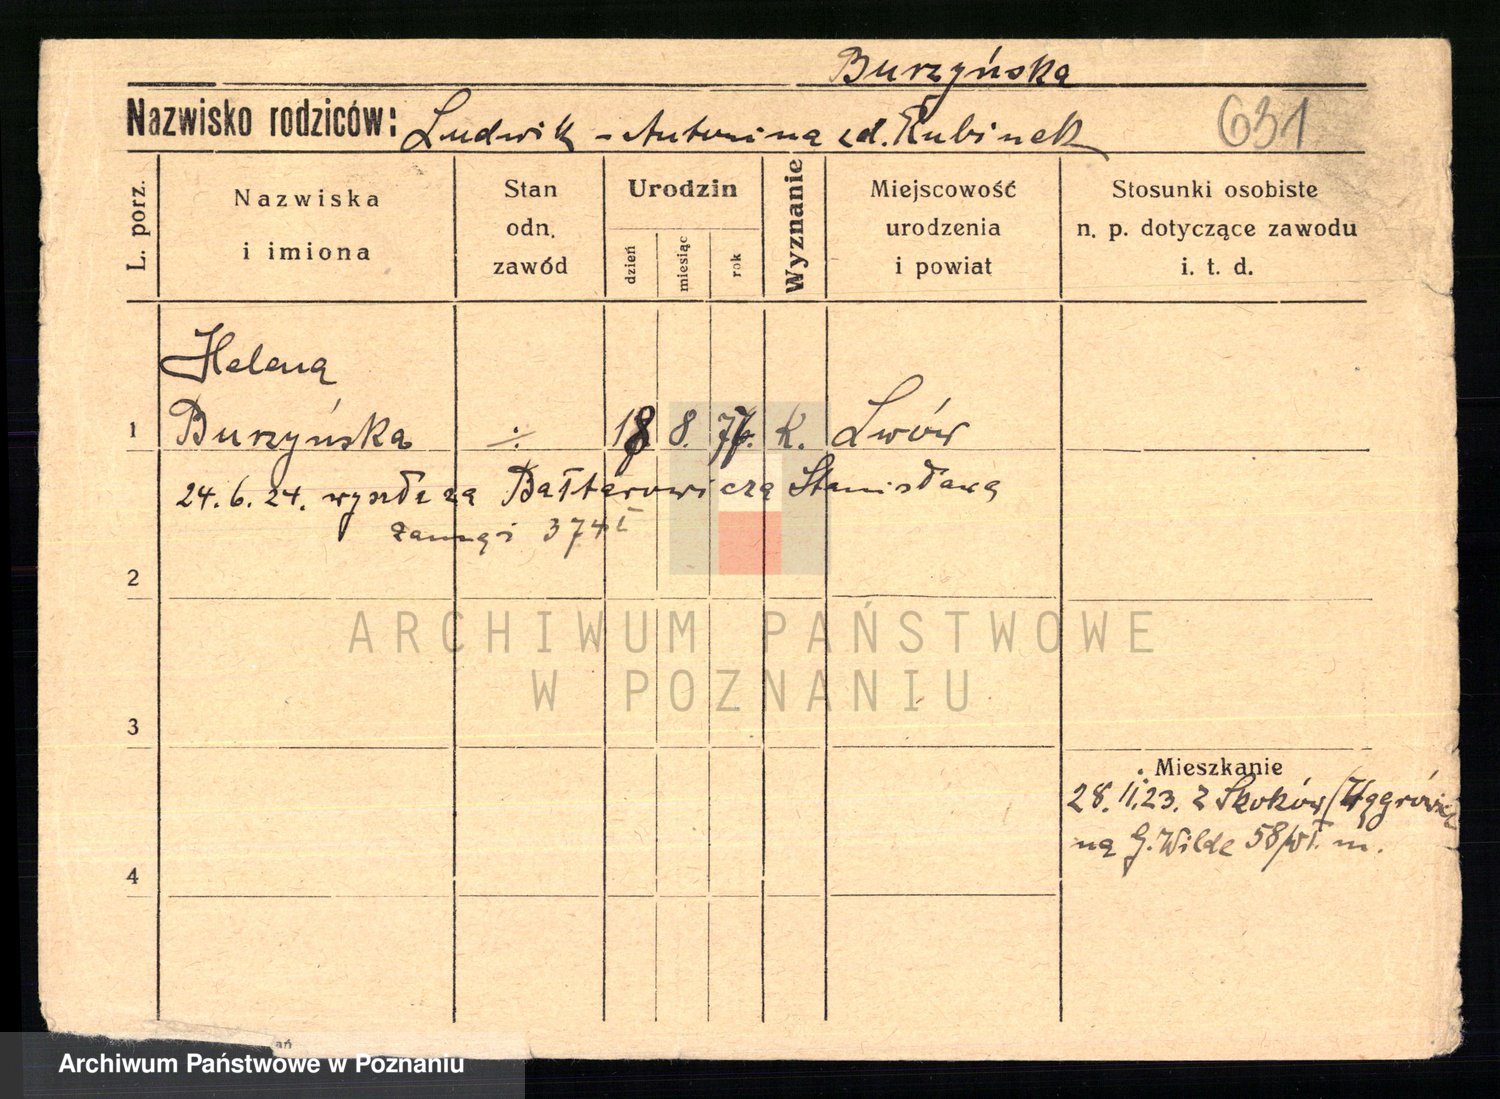 Burzyńska
Nazwisko rodziców: Ludwik - Antonina zd. Kubinek
631
L. porz.
Nazwiska
i imiona
Stan
odn.
zawód
Urodzin
dzień
miesiąc
rok
Wyznanie
Miejscowość
urodzenia
i powiat
Stosunki osobiste
n. p. dotyczące zawodu
i. t. d.
Helena
1 Burzyńska ÷ 18 8. K. Lwów
24.6.24. wyszła za Bałtarowicza Stanisława
374
2
ARCHIWUM PAŃSTWOWE
W POZNANIU
3
Mieszkanie
28.II.23. z Skoków
na G. Wilda 58/ m.
4
Archiwum Państwowe w Poznaniu